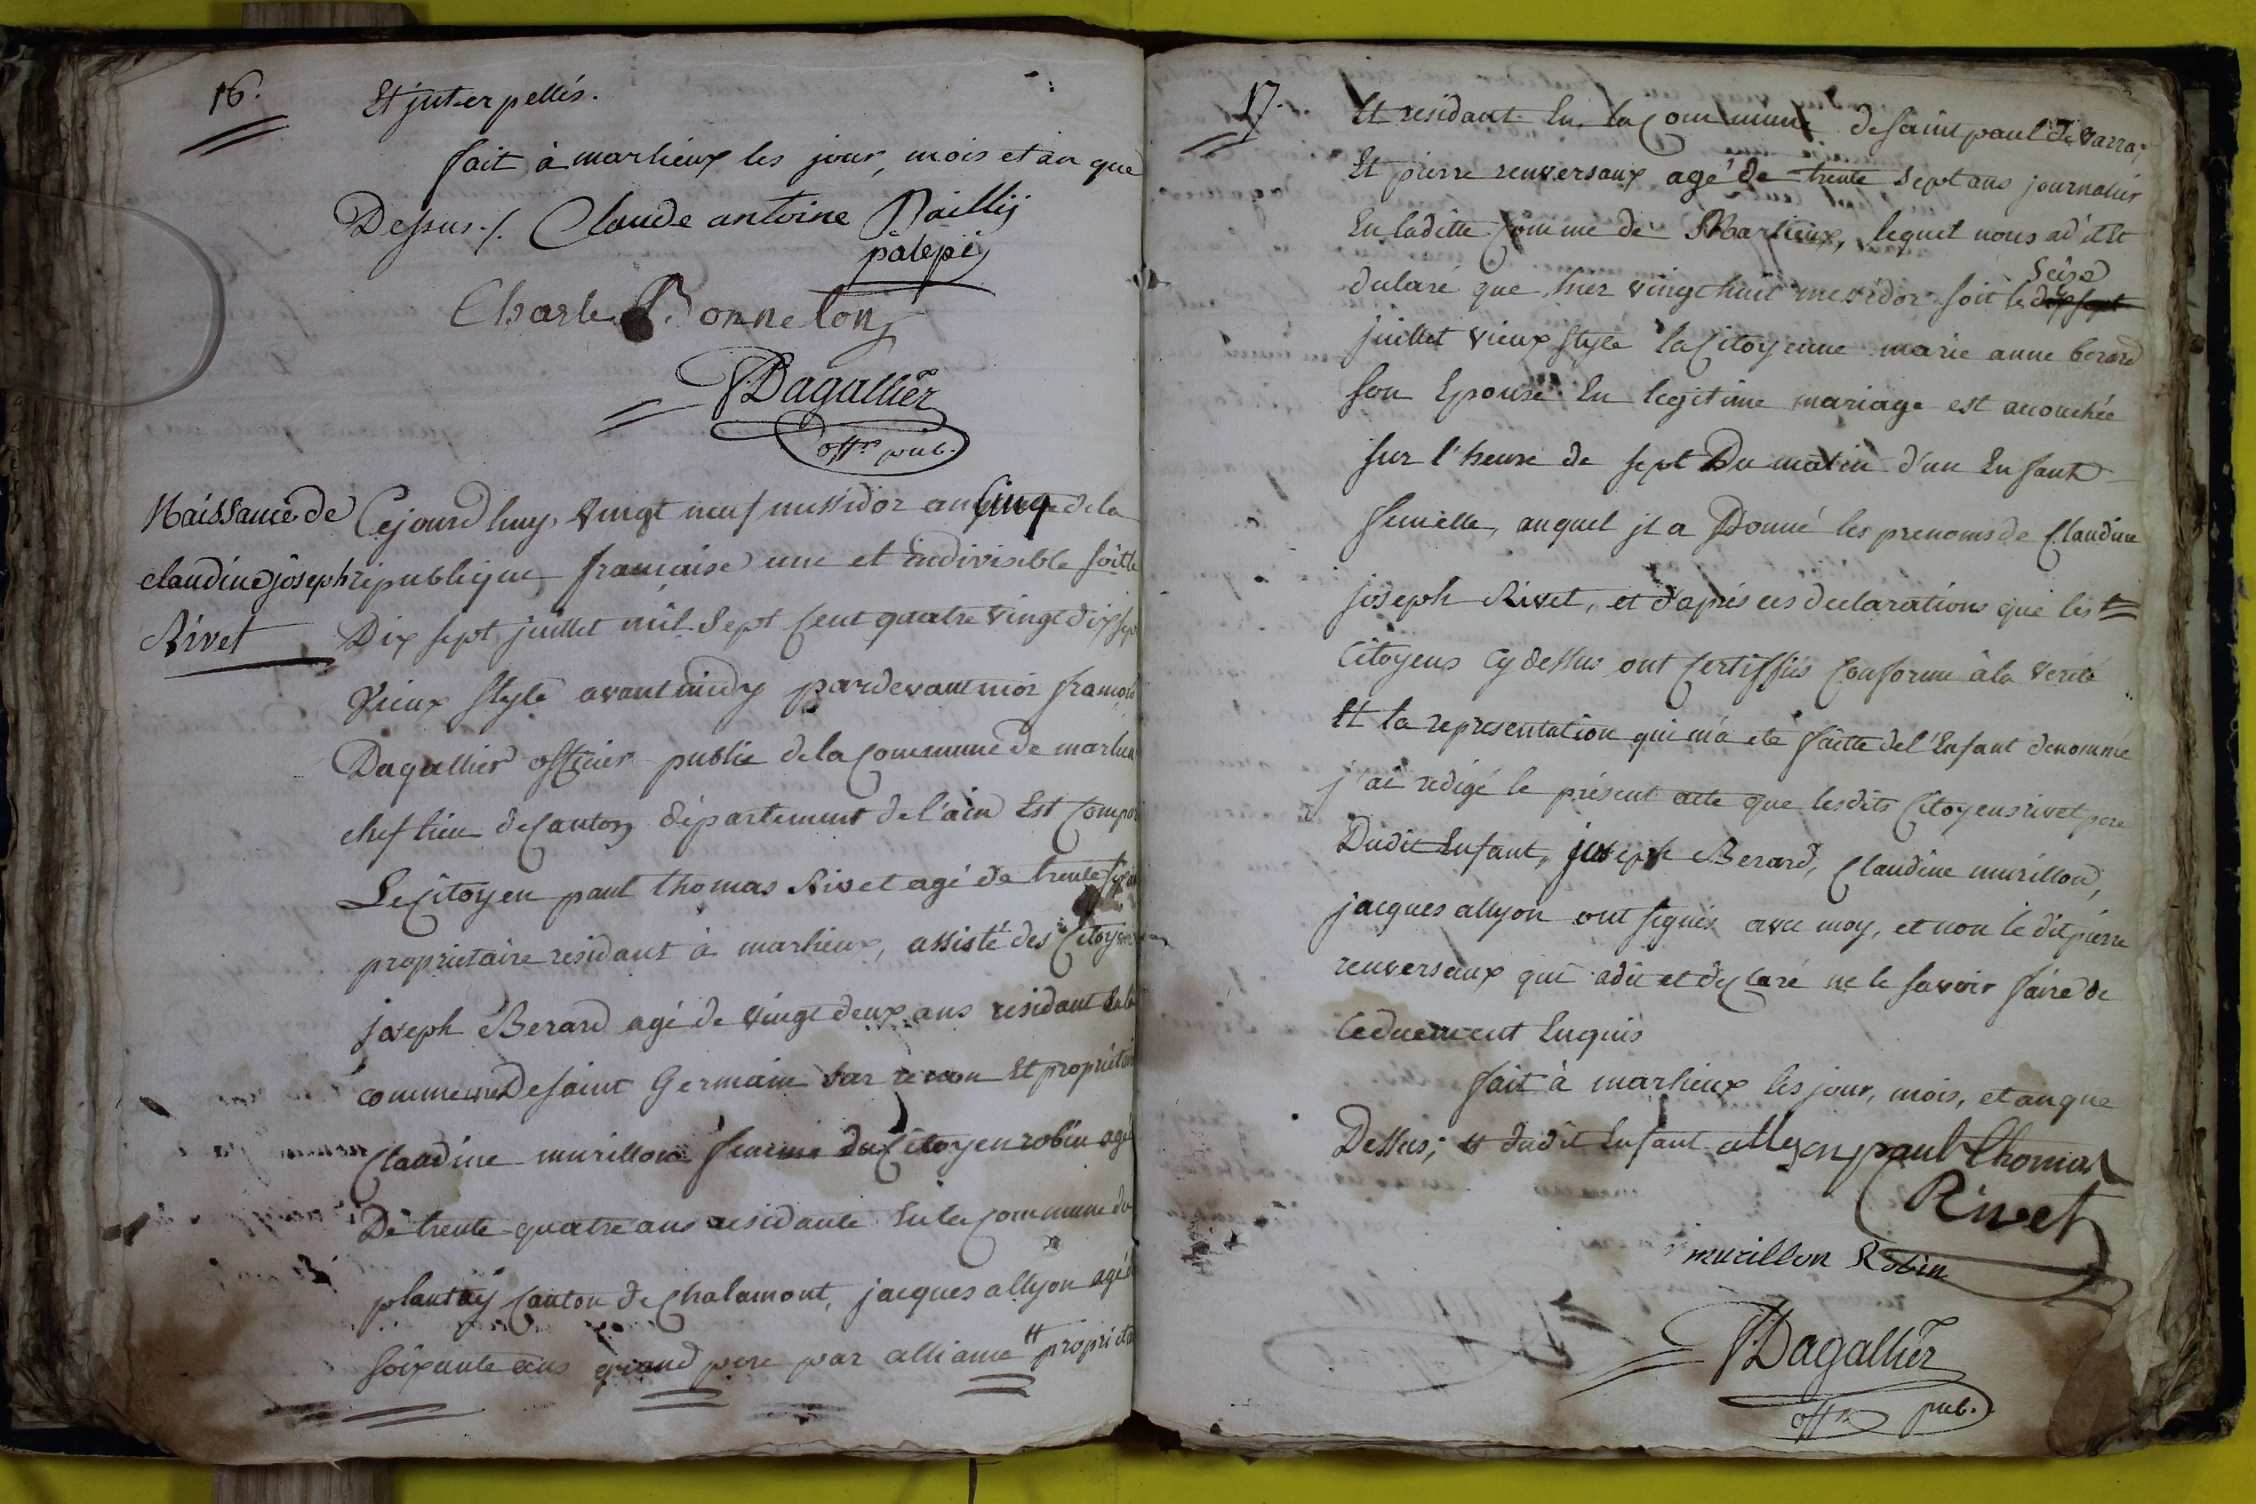 16.
Et juterpellés.
fait à marlieux les jour, mois et an que
Dessus./. Claude antoine Baillij
palepij
Charle Bonneton
Dagallier
offer pub.
Naissance de
claudine joseph
Rivet
Cejourdhuy, vingt neuf messidor an Cinq de la
republique française une et Indivisible soit le
Dix sept juillet mil Sept Cent quatre vingt dix sept
vieux style avant midy pardevant moi françois
Dagallier officier public de la Commune de marlieux
chef lieu de Canton département de l'ain Est Comparu
Le Citoyen paul thomas Rivet agé de trente six ans
proprietaire residant à marlieux, assisté des Citoyens
joseph Berard agé de vingt deux ans residant En la
commune De saint Germain sur renon Et proprietaire
Claudine murillon femme du Citoyen robin agée
De trente quatre ans residante En la Commune du
plantay Canton de Chalamont, jacques allyon agé de
soixante ans grand pere par alliance Et proprieta
17.
Et residant En la Commune de saint paul de varra;
Et pierre renversaux agé de trente Sept ans journalier
En laditte Comme de Marlieux, lequel nous ad it Et
declaré que hier vingt huit messidor soit le dix sept Seize
juillet vieux Style la Citoyenne marie anne berard
son Epouse En legitime mariage est acouchée
sur l'heure de sept Du matin d'un Enfant
femelle, auquel jl a Donné les prenoms de Claudine
joseph Rivet, et d'après ces declarations que les
Citoyens Cy dessus ont Certiffiés Conforme à la verité
Et la representation qui m'a eté faitte de l'Enfant denommé
j'ai redigé le présent acte que lesdits Citoyens rivet pere
Dudit Enfant, joseph Berard, Claudine murillon,
jacques allyon ont signés avec moy, et non le dit pierre
renversaux qui adit et declaré ne le savoir faire de
ceduement Enquis
fait à marlieux les jour, mois, et an que
Dessus; et dudit Enfant allyon paul thomas
Rivet
murillon Robin
Dagallier
offer pub.